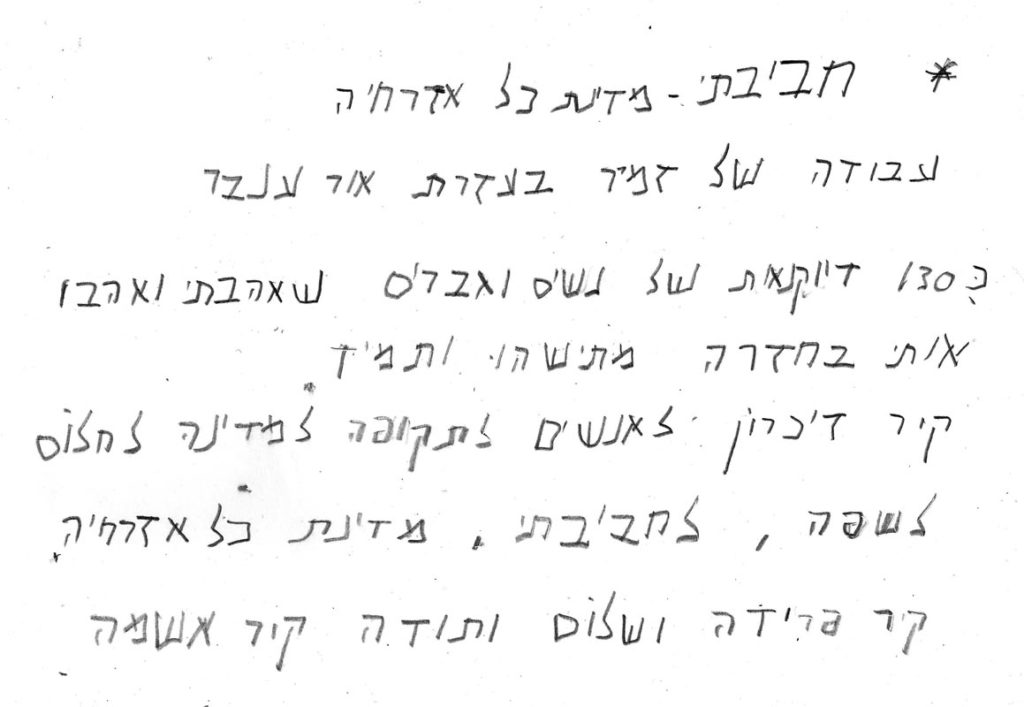 * חביבתי - מדינת כל אזרחיה
עבודה של זמיר בעזרת אור ענבר
כ130 דיוקנאות של נשים וגברים שאהבתי ואהבו
אותי בחזרה מתישהו ותמיד
קיר זיכרון לאנשים לתקופה למדינה לחלום
לשפה, לחביבתי. מדינת כל אזרחיה
קיר פרידה ושלום ותודה קיר אשמה